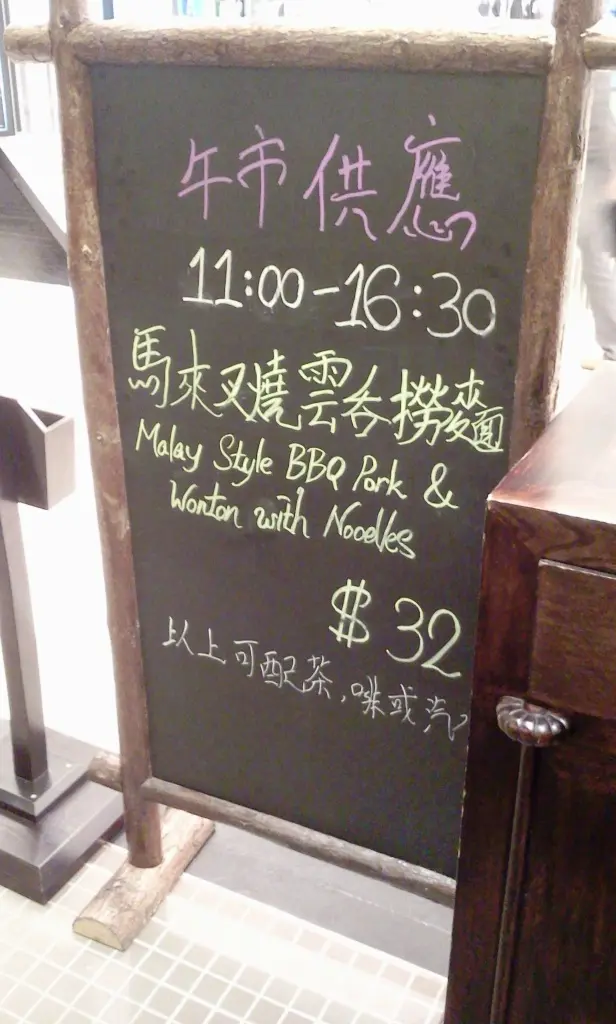 午市供應
11:00-16:30
馬來叉燒雲吞撈麵
Malay Style BBQ Pork &
Wonton with Noodles
$32
以上可配茶,啡或汽